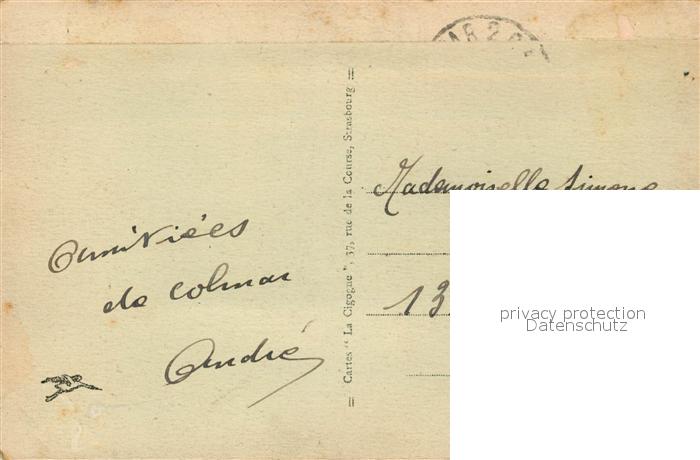 Amitiées
de Colmar
André
Cartes "La Cigogne", 37, rue de la Course, Strasbourg
Mademoiselle Simone
13
privacy protection
Datenschutz